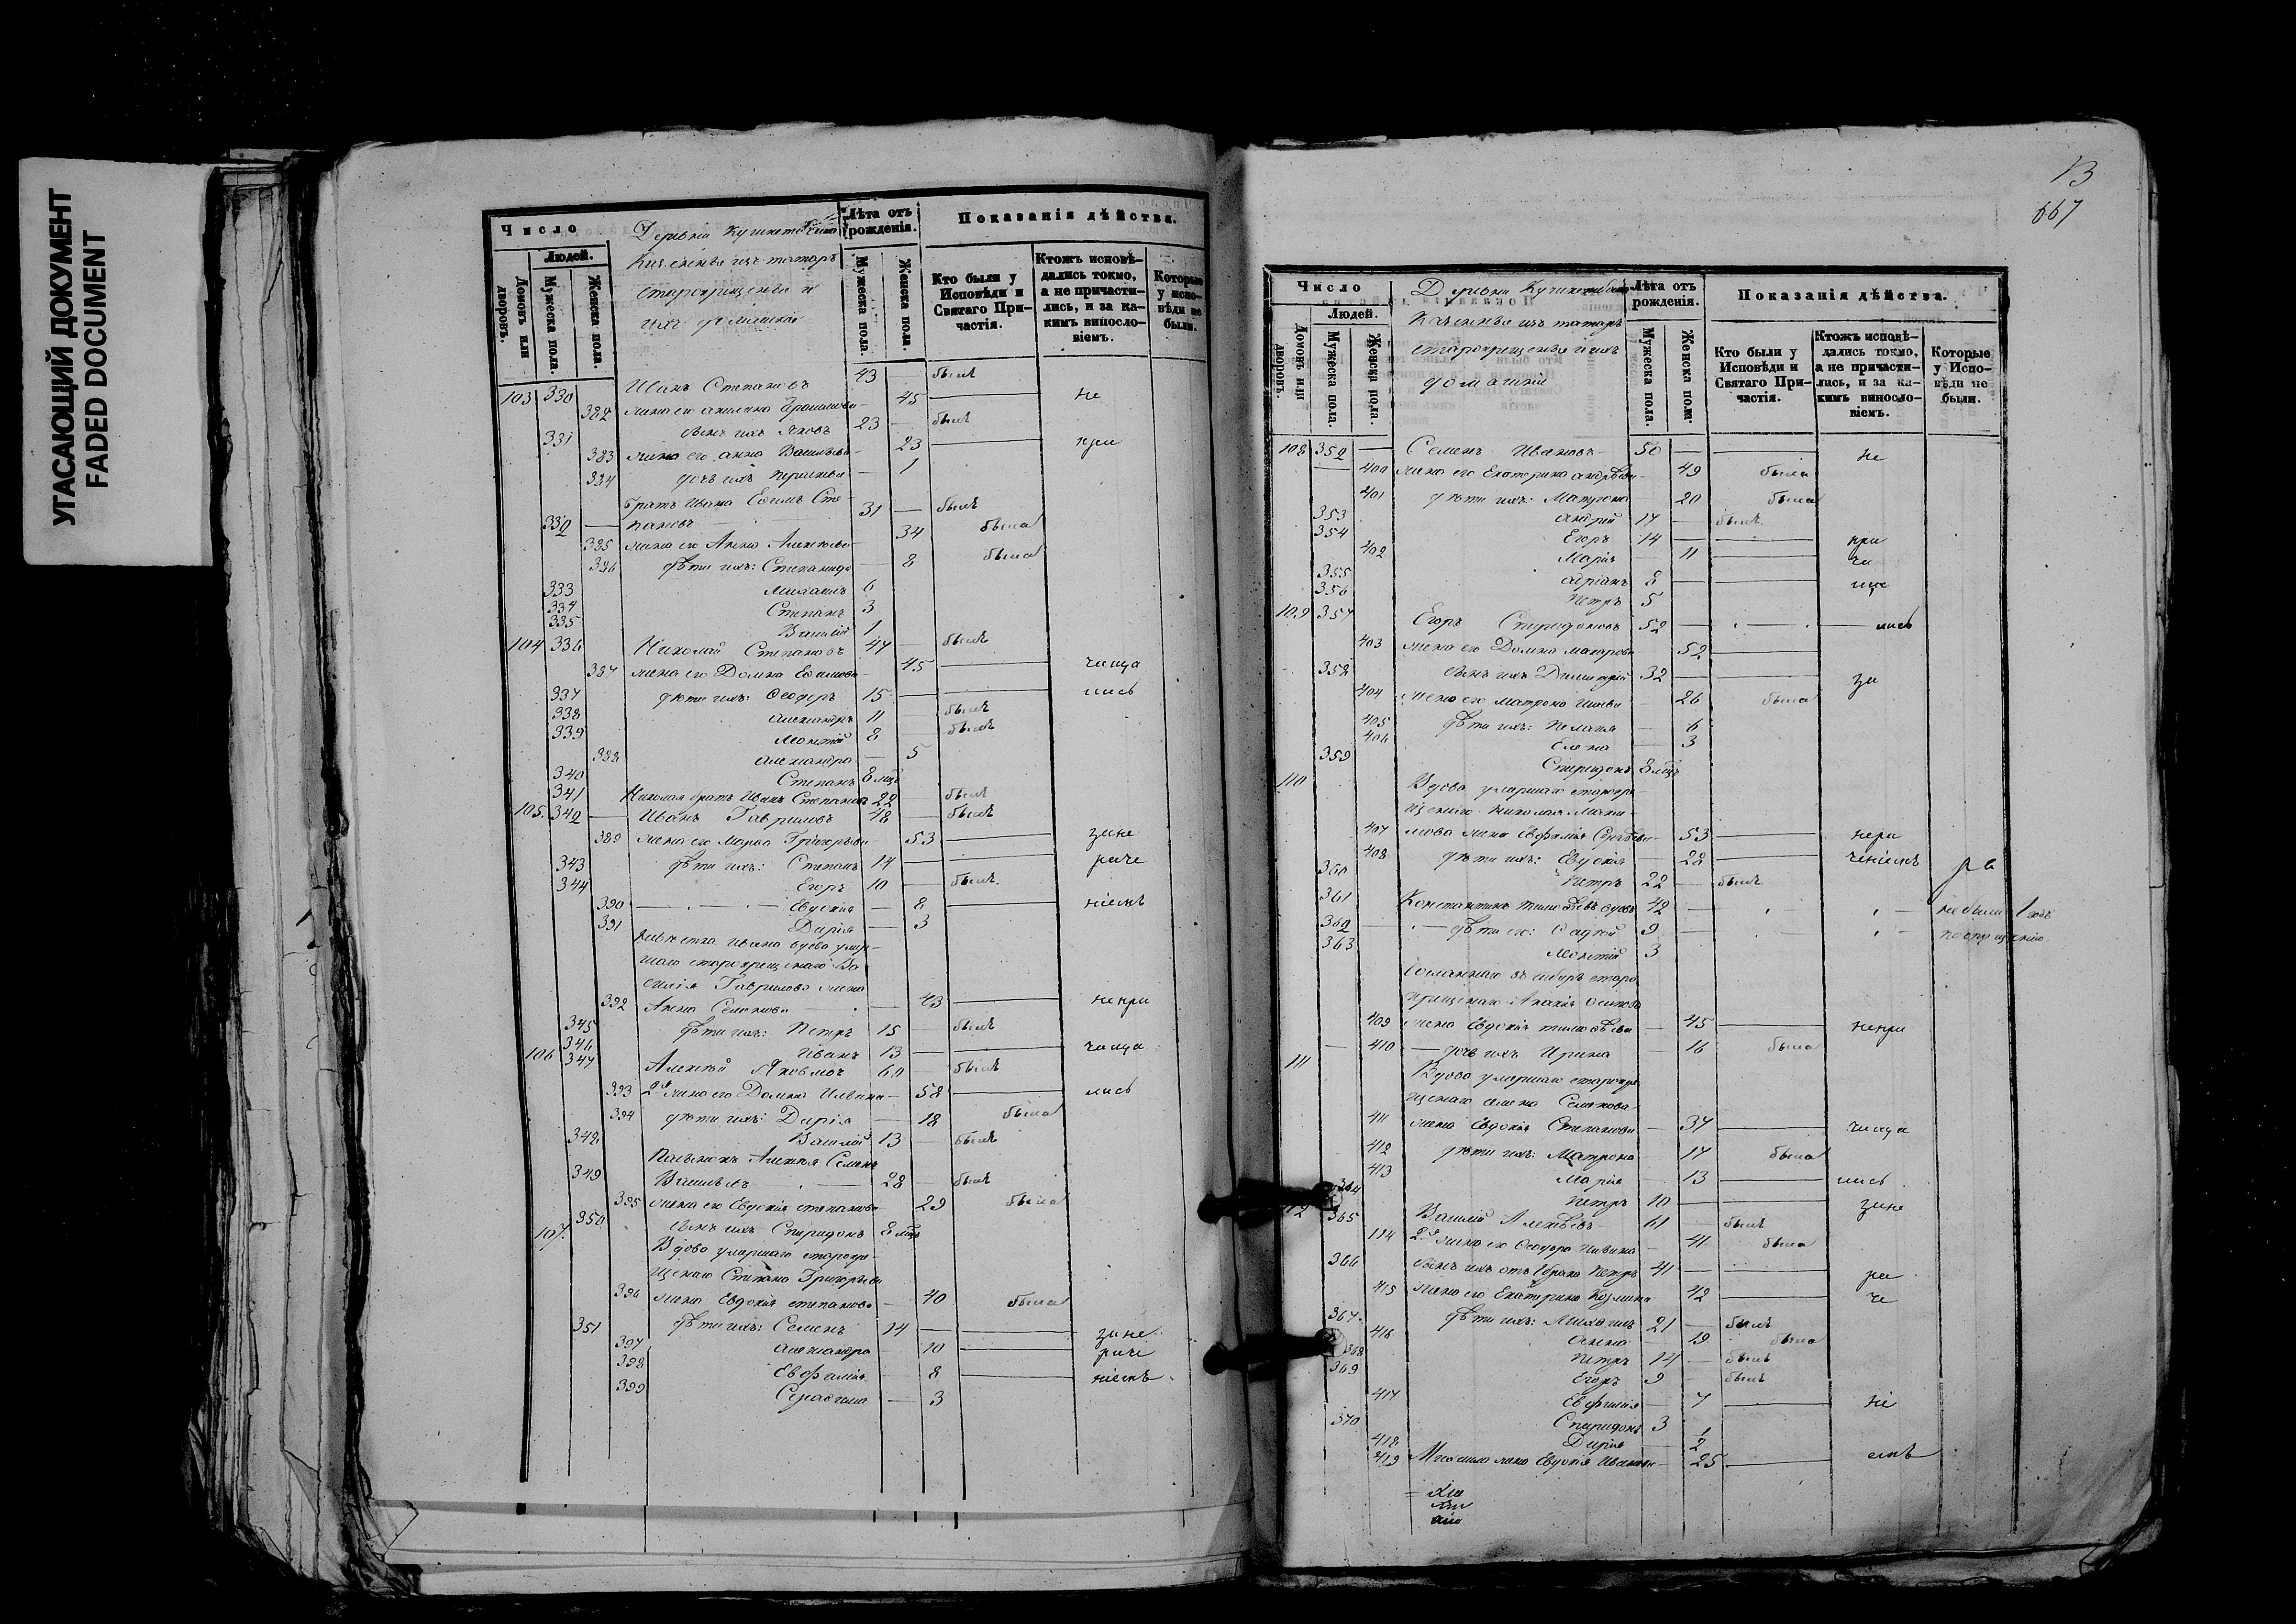 УГАСАЮЩИЙ ДОКУМЕНТ
FADED DOCUMENT
Число
Людей.
Домовъ или дворовъ.
Мужеска пола.
Женска пола.
Деревни
Казенныя изъ татаръ
старокрещеныя и
ихъ домашнiи
Лѣта отъ рожденiя.
Мужеска пола.
Женска пола.
Показанiя дѣйства.
Кто были у Исповѣди и Святаго Причастiя.
Ктожъ исповѣдались токмо, а не причастились, и за какимъ винословiемъ.
Которые у исповѣди не были.
103 330 Иванъ Степановъ 43 — былъ
382 жена его 45 — не
331 сынъ ихъ Яковъ 23 — былъ
383 жена его Анна Васильева — 23 — при
384 дочь ихъ — 1
братъ Ивана Ефимъ Сте-
332 — пановъ 31 — былъ
385 жена его Анна Алексѣева — 34 была
386 дѣти ихъ: Степанида — 8 была
333 Михаилъ 6
334 Степанъ 3
335 Василiй 1
104 336 Николай Степановъ 47 — былъ
387 жена его Домна Ефимова — 45 — чаща
337 дѣти ихъ: Ѳеодоръ 15 — лись
338 Александръ 11 — былъ
339 8 — былъ
388 Александра — 5
340 Степанъ 8 мцъ
341 Николая братъ Иванъ Степановъ 22 былъ
105. 342 — Иванъ Гавриловъ 48 — былъ
389 жена его Марья Григорьева — 53 — зане
343 дѣти ихъ: Степанъ 14 — раче
344 Егоръ 10 — былъ
390 Евдокiя — 8 — нiемъ
391 Дарiя — 3
невѣстка Ивана вдова умер-
шаго старокрещенаго Ва-
силiя Гаврилова жена
392 Анна Семенова — 43 — непри
345 дѣти ихъ: Петръ 15 — былъ
346 Иванъ 13 — чаща
106 347 Алексѣй Яковлевъ 60 — былъ
393 2я жена его Домна Ильина — 58 — лись
394 дѣти ихъ: Дарiя — 18 была
348 Василiй 13 — былъ
Пасынокъ Алексѣя Семенъ
349 Васильевъ 28 — былъ
395 жена его Евдокiя Степанова 29 была
350 сынъ ихъ Спиридонъ 8 мцъ
107. Вдова умершаго старокре-
щенаго Степана Григорьева
396 жена Евдокiя Степанова — 40 была
351 дѣти ихъ: Семенъ 14 — зане
397 Александра — 10 — раче
398 Евфимiя — 8 — нiемъ
399 — 3
13
667
Число
Людей.
Домовъ или дворовъ.
Мужеска пола.
Женска пола.
Деревни
Казенныя изъ татаръ
старокрещеныя и ихъ
домашнiи
Лѣта отъ рожденiя.
Мужеска пола.
Женска пола.
Показанiя дѣйства.
Кто были у Исповѣди и Святаго Причастiя.
Ктожъ исповѣдались токмо, а не причастились, и за какимъ винословiемъ.
Которые у Исповѣди не были.
108 352 — Семенъ Ивановъ 50 — не
400 жена его Екатерина Андреева — 49 была
401 дѣти ихъ: Матрона 20 была
353 Андрей 17 — былъ
354 Егоръ 14 — при
402 Марiя 11 — ча
355 Адрiанъ 8 — ще
356 Петръ 5
109 357 Егоръ Спиридоновъ 52 — лись
403 жена его Домна Макарова 52
358 сынъ ихъ Димитрiй 32 — за
404 жена его Матрона — 26 была
405 дѣти ихъ: Пелагiя — 6
406 Елена — 3
359 Спиридонъ 8 мцъ
110 Вдова умершаго старокре-
щенаго Николая Макси-
407 мова жена Евфимiя Сергѣева — 53 — нера
408 дѣти ихъ: Евдокiя — 28 — ченiемъ
360 Петръ 22 — былъ
361 Константинъ Тимоѳеевъ вдовъ 42 — не были
362 дѣти его: 9
363 3
Сосланнаго въ сибирь старо
крещенаго Осипова
409 жена Евдокiя Тимоѳеева — 45 — непри
410 — дочь ихъ Ирина 16 была
111 Вдова умершаго старокре
щенаго Семена Семенова
411 жена Евдокiя Степанова — 37 — чаща
412 дѣти ихъ: Матрона — 17 была
413 Марiя — 13 — лись
364 Петръ 10 — зане
112 365 Василiй Алексѣевъ 61 — былъ
114 2я жена его Ѳеодора — 41 была
366 сынъ ихъ отъ 1 брака Петръ 41 — ра
415 жена его Екатерина Козмина 42 — че
367. дѣти ихъ: Михаилъ 21 — былъ
416 Анна 19 была
368 Петръ 14 — былъ
369 Егоръ 9 — былъ
417 Евфимiя — 7 — нi
370 Спиридонъ 3
418 Дарiя — 2
419 Михаила жена Евдокiя Иванова 25 — емъ